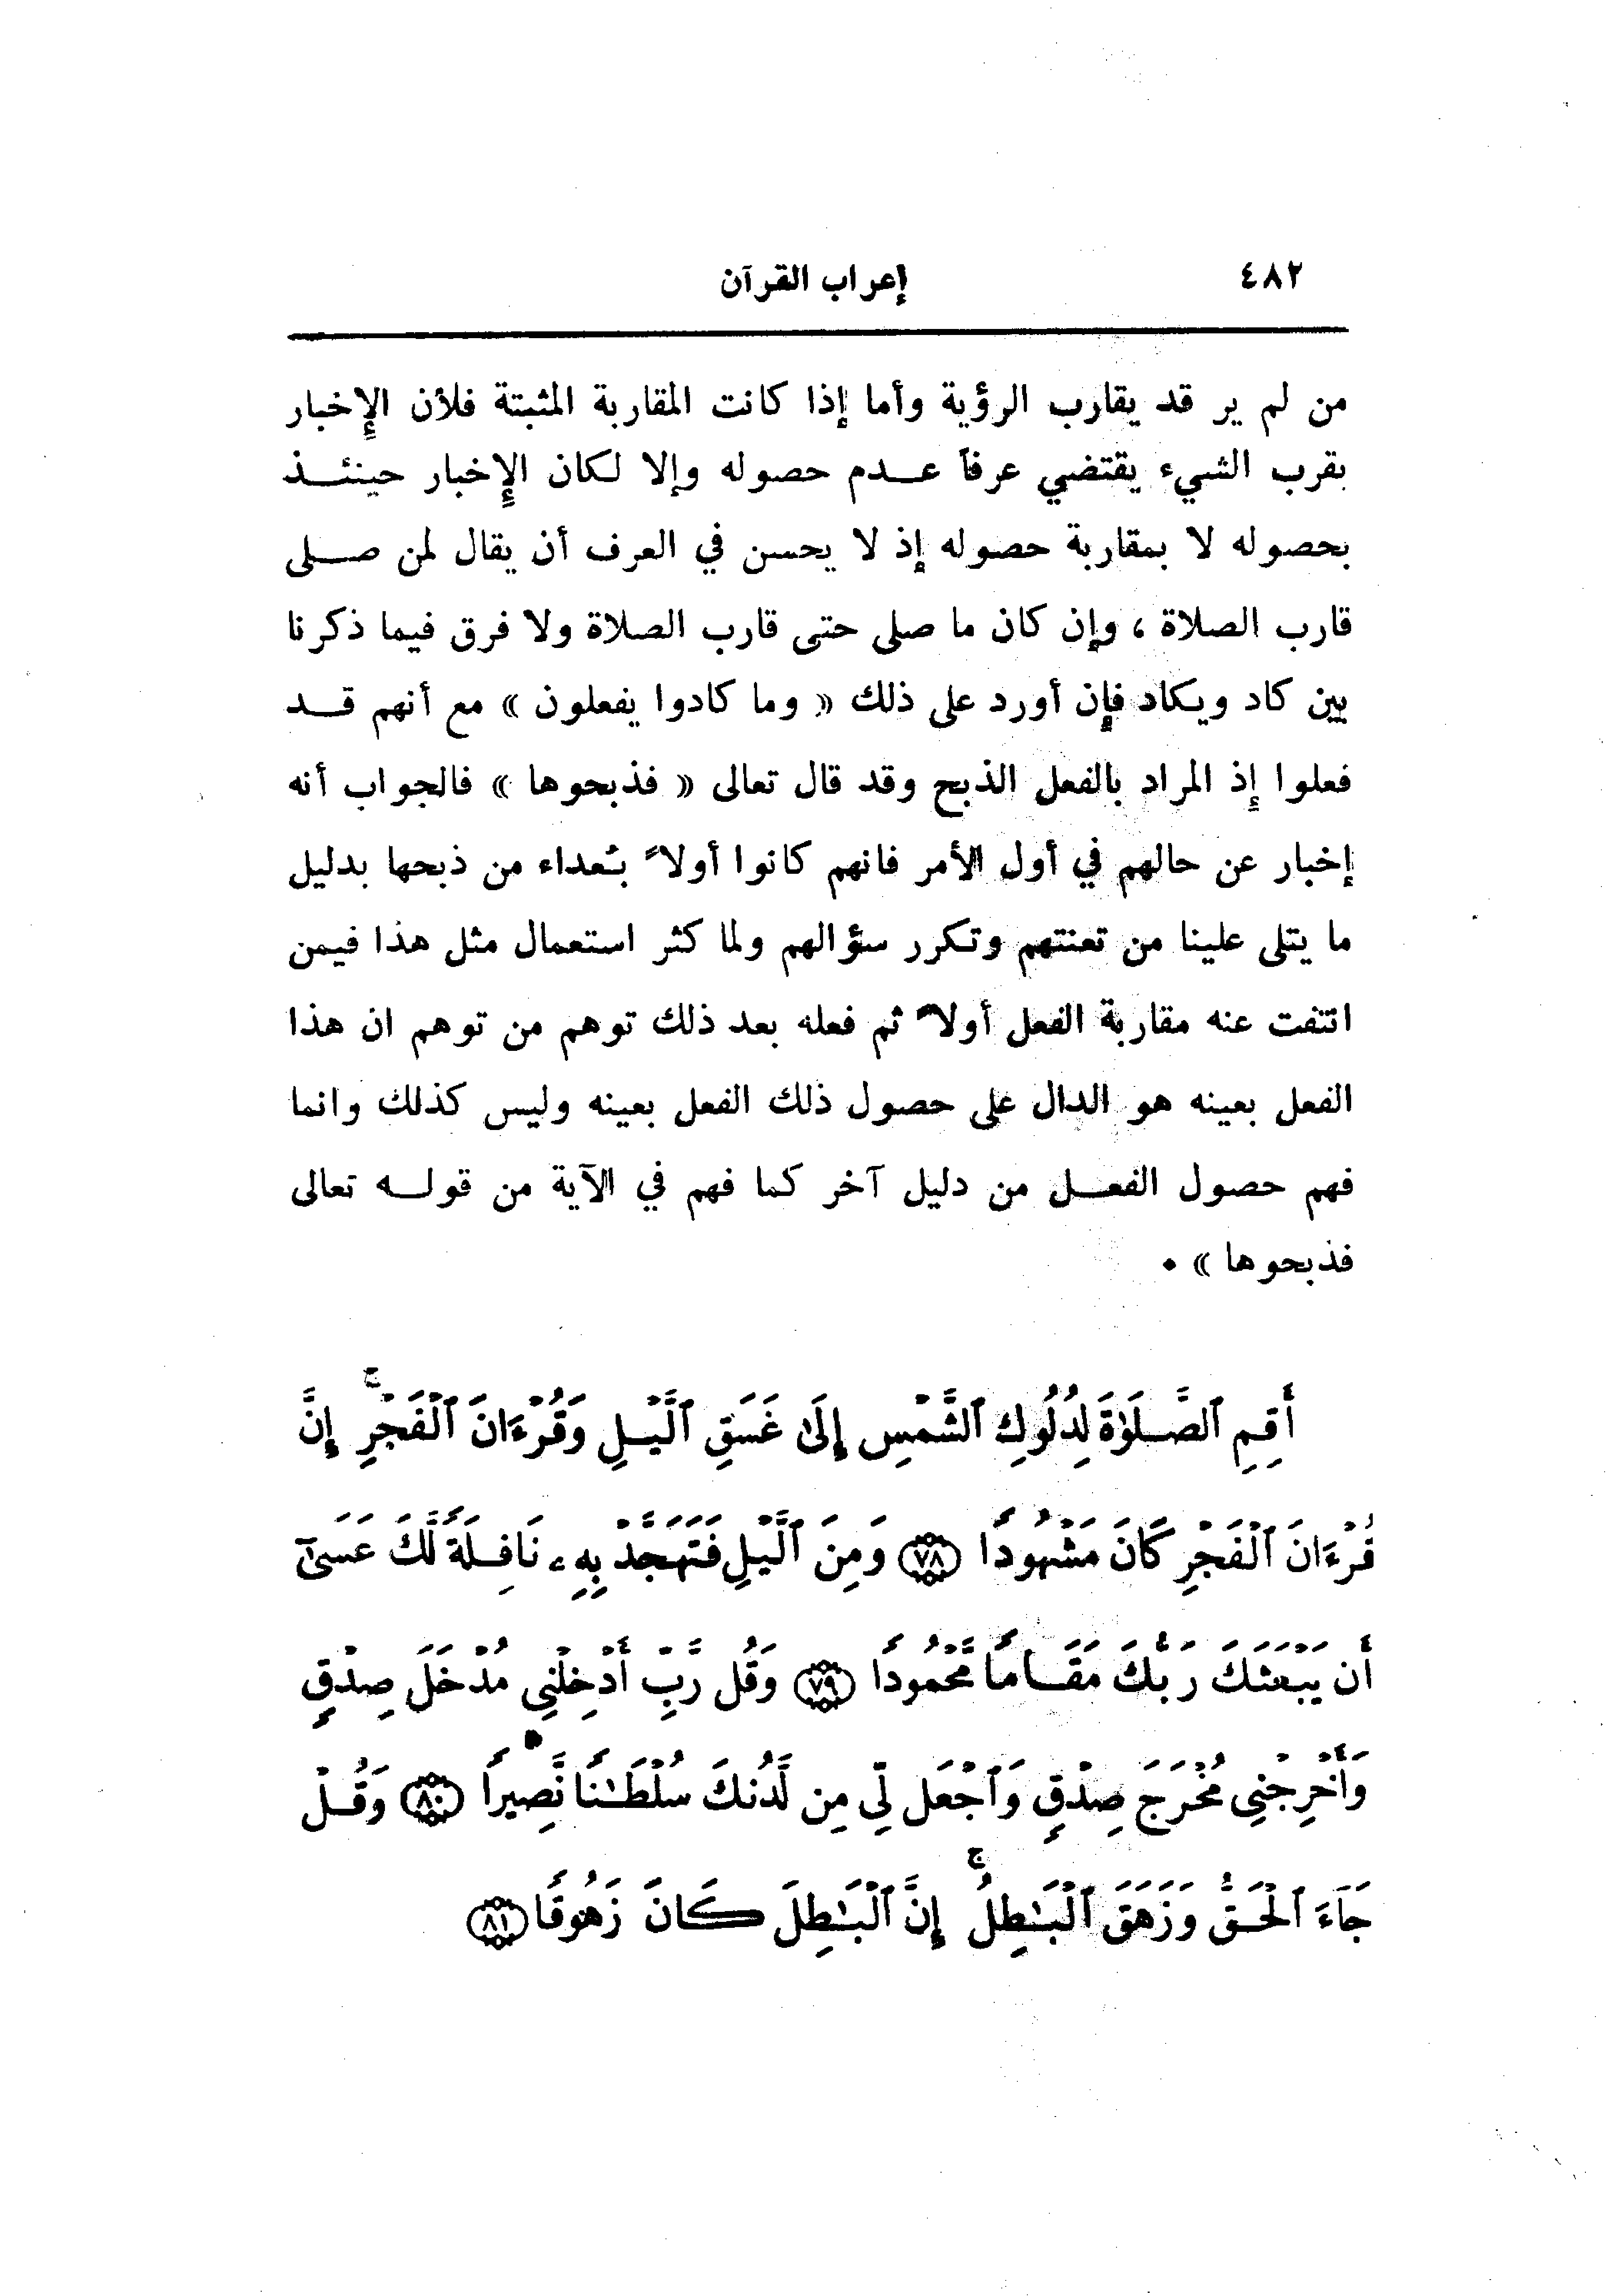 ٤٨٢ إعراب القرآن
من لم ير قد يقارب الرؤية وأما إذا كانت المقاربة المثبتة فلأن الإِخبار
بقرب الشيء يقتضي عرفاً عـدم حصوله وإلا لكان الإِخبار حينئـذ
بحصوله لا بمقاربة حصوله إذ لا يحسن في العرف أن يقال لمن صـلى
قارب الصلاة ، وإن كان ما صلى حتى قارب الصلاة ولا فرق فيما ذكرنا
بين كاد ويكاد فإن أورد على ذلك « وما كادوا يفعلون » مع أنهم قـد
فعلوا إذ المراد بالفعل الذبح وقد قال تعالى « فذبحوها » فالجواب أنه
إخبار عن حالهم في أول الأمر فانهم كانوا أولاً بُعداء من ذبحها بدليل
ما يتلى علينا من تعنتهم وتكرر سؤالهم ولما كثر استعمال مثل هذا فيمن
انتفت عنه مقاربة الفعل أولاً ثم فعله بعد ذلك توهم من توهم ان هذا
الفعل بعينه هو الدال على حصول ذلك الفعل بعينه وليس كذلك وانما
فهم حصول الفعـل من دليل آخر كما فهم في الآية من قولـه تعالى
فذبحوها » .
أَقِمِ ٱلصَّلَوٰةَ لِدُلُوكِ ٱلشَّمْسِ إِلَىٰ غَسَقِ ٱلَّيْلِ وَقُرْءَانَ ٱلْفَجْرِ ۚ إِنَّ
قُرْءَانَ ٱلْفَجْرِ كَانَ مَشْهُودًا ﴿٧٨﴾ وَمِنَ ٱلَّيْلِ فَتَهَجَّدْ بِهِۦ نَافِلَةً لَّكَ عَسَىٰٓ
أَن يَبْعَثَكَ رَبُّكَ مَقَامًا مَّحْمُودًا ﴿٧٩﴾ وَقُل رَّبِّ أَدْخِلْنِي مُدْخَلَ صِدْقٍ
وَأَخْرِجْنِي مُخْرَجَ صِدْقٍ وَٱجْعَل لِّي مِن لَّدُنكَ سُلْطَٰنًا نَّصِيرًا ﴿٨٠﴾ وَقُلْ
جَآءَ ٱلْحَقُّ وَزَهَقَ ٱلْبَٰطِلُ ۚ إِنَّ ٱلْبَٰطِلَ كَانَ زَهُوقًا ﴿٨١﴾